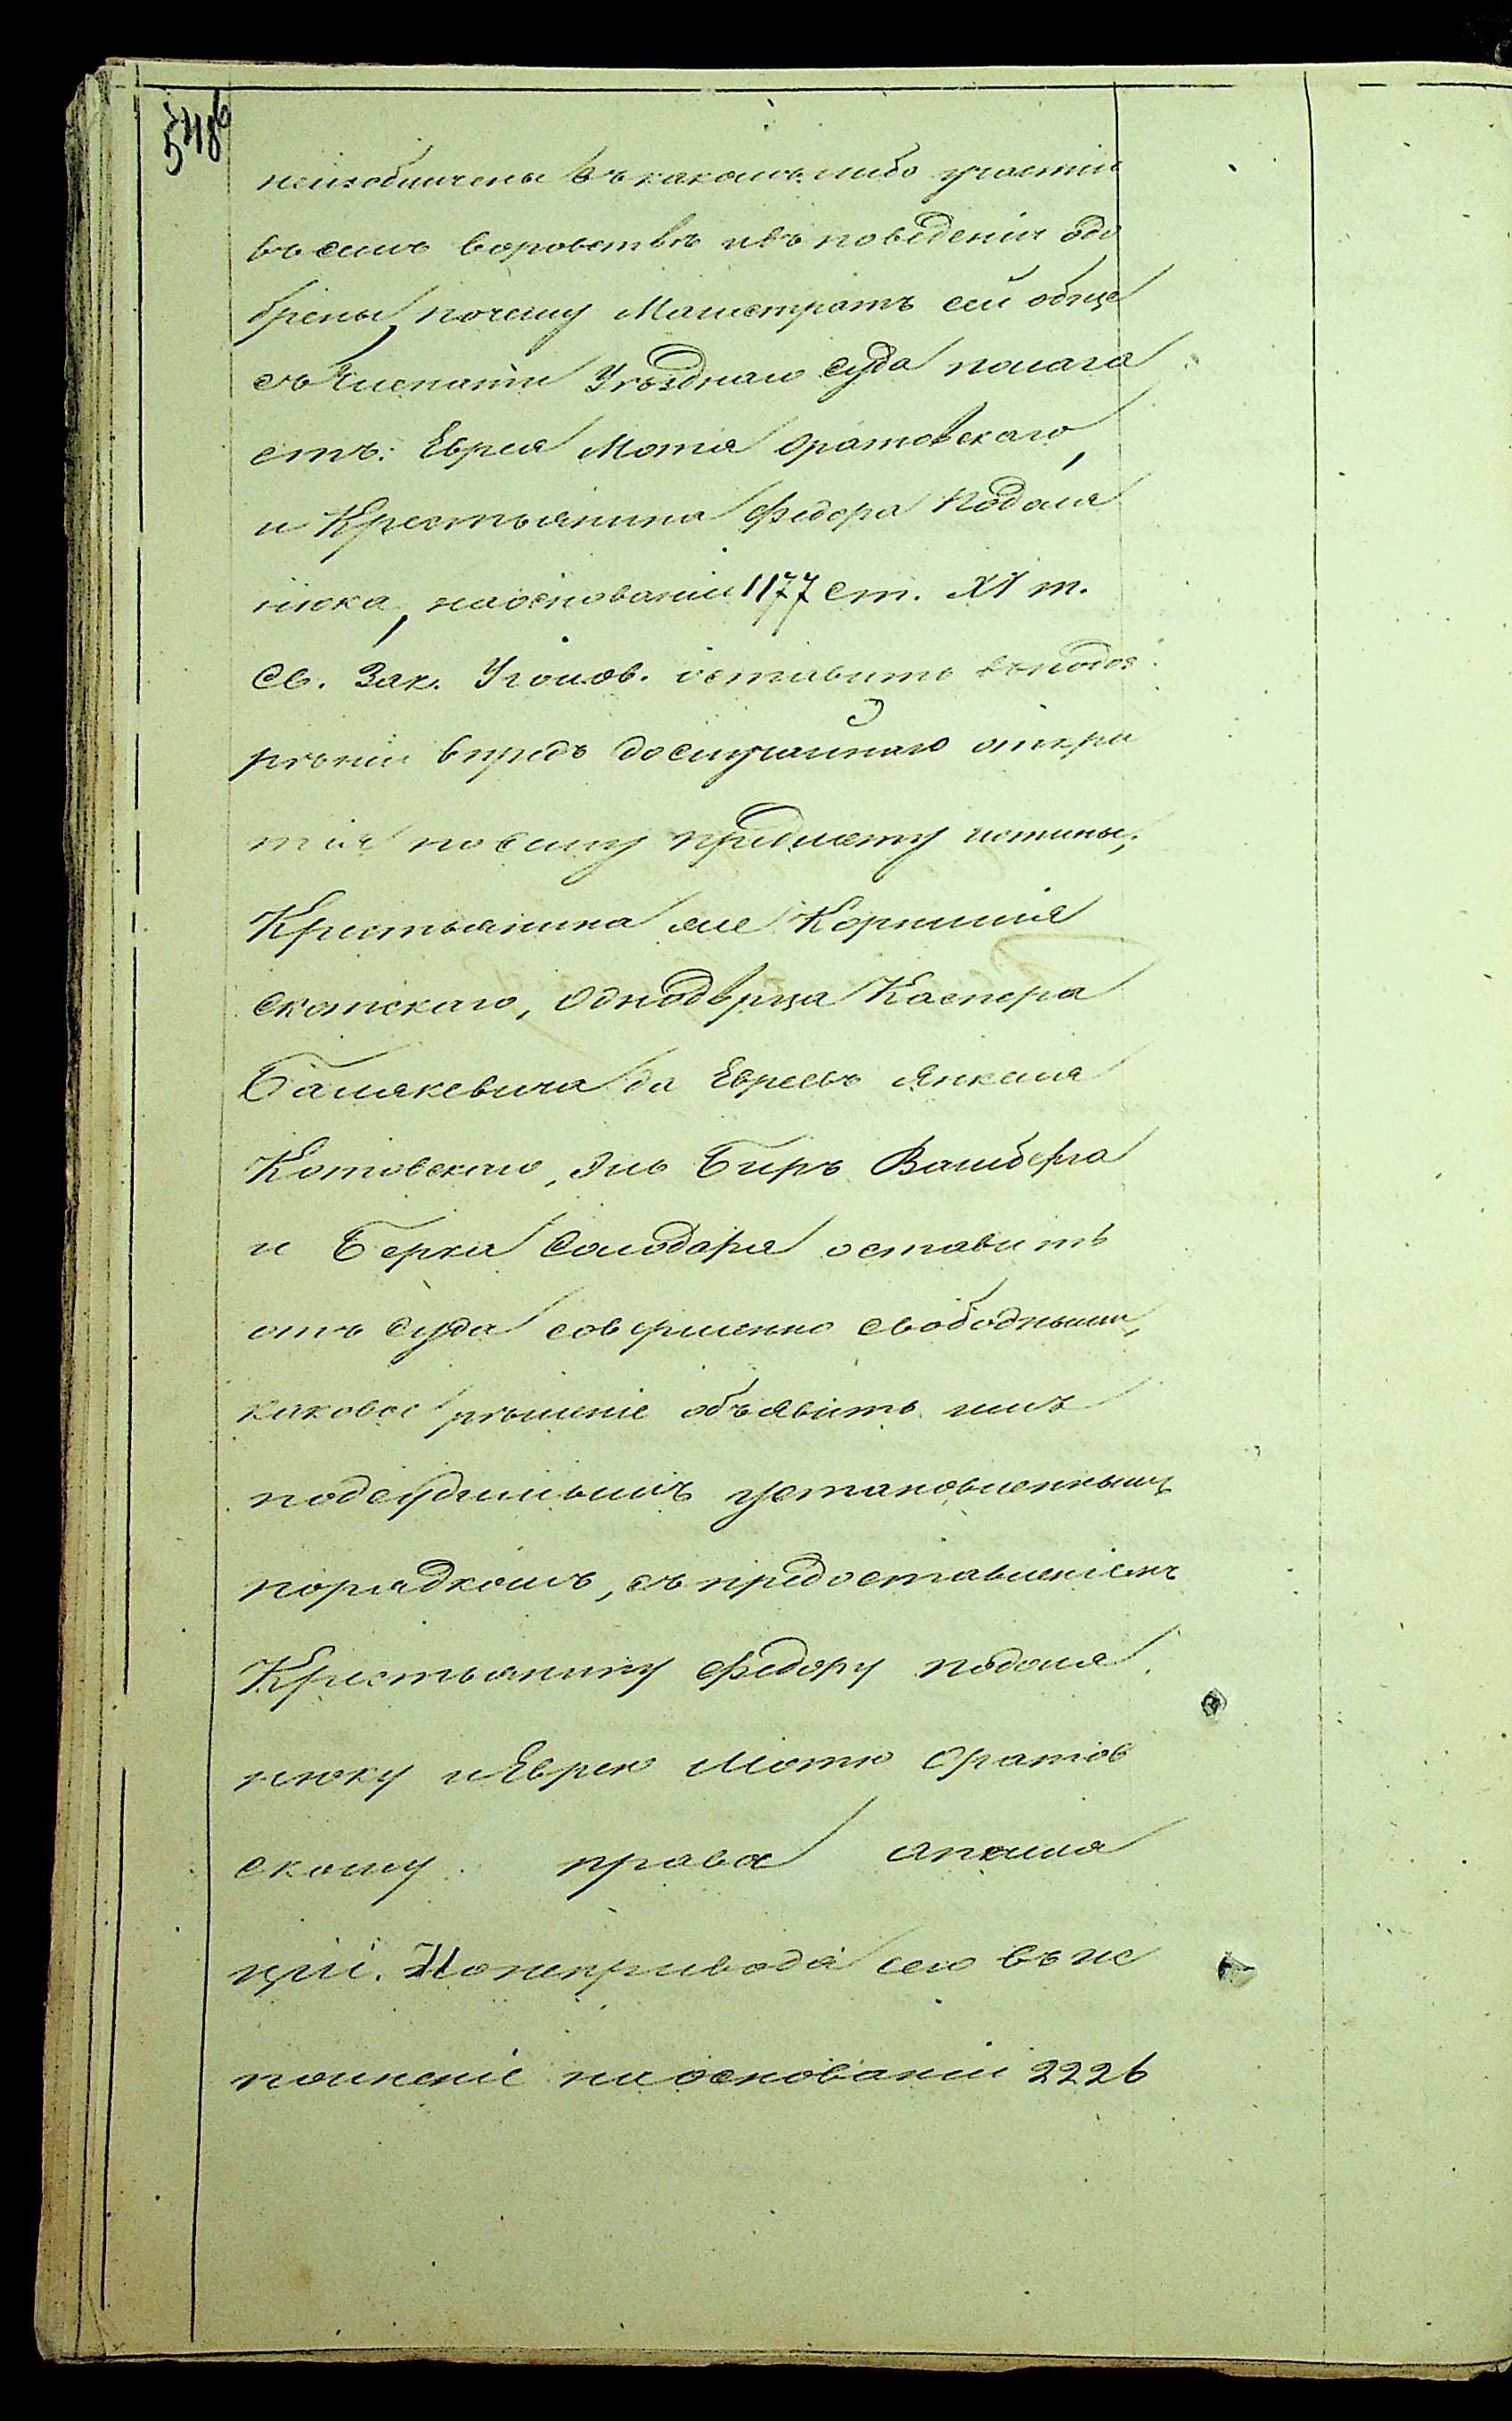 548б
неизобличены въ какомъ либо участіи
въ семъ воровствѣ и въ поведеніи одо
брены, почему Магистратъ сей обще
съ Членами Уѣзднаго Суда полага
етъ: Еврея Мотя Оратовскаго,
и Крестьянина Федора Подоля
нюка, на основаніи 1177 ст. XV т.
Св. Зак. Уголов. оставить въ подоз
рѣніи впредь до случайнаго откры
тія по сему предмету истины;
Крестьянина же Корнилія
Скотскаго, Однодворца Каспера
Балякевича да Евреевъ Янкеля
Котовскаго, Эль Биръ Вамберга
и Берка Солодаря оставить
отъ суда совершенно свободными,
каковое рѣшеніе объявить имъ
подсудимымъ установленнымъ
порядкомъ, съ предоставленіемъ
Крестьянину Федору Подоля
нюку и Еврею Мотю Оратов
скому права апеля
ціи. Но не приводя сего въ ис
полненіе на основаніи 2226